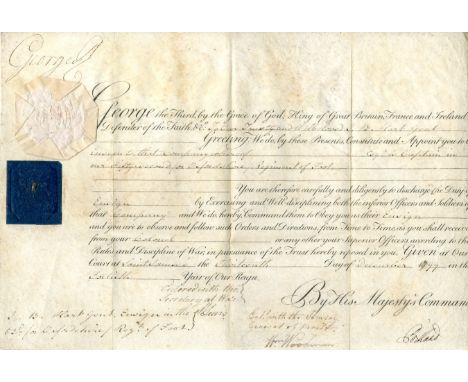 George R
George the Third, by the Grace of God, King of Great Britain, France and Ireland
Defender of the Faith, &c. To Our Trusty and Welbeloved B. Hart Gent.
Greeting: We do, by these Presents, Constitute and Appoint you to be
Ensign to that Company whereof Esq. is Captain in
our Fifty second or Oxfordshire Regiment of Foot
You are therefore carefully and diligently to discharge the Duty of
Ensign by Exercising and Well disciplining both the inferior Officers and Soldiers of
that Company and We do hereby Command them to Obey you as their Ensign
and you are to observe and follow such Orders and Directions, from Time to Time, as you shall receive
from your Colonel or any other your Superior Officers according to the
Rules and Discipline of War, in pursuance of the Trust hereby reposed in you. Given at Our
Court at Saint James's the Day of December 1799 in the
Fortieth Year of Our Reign.
Entered with the
Secretary at War
By His Majesty's Command
B. Hart Gent. Ensign in the
52d or Oxfordshire Regt. of Foot
Entd. with the
General of
Wm. Woodman
Portland